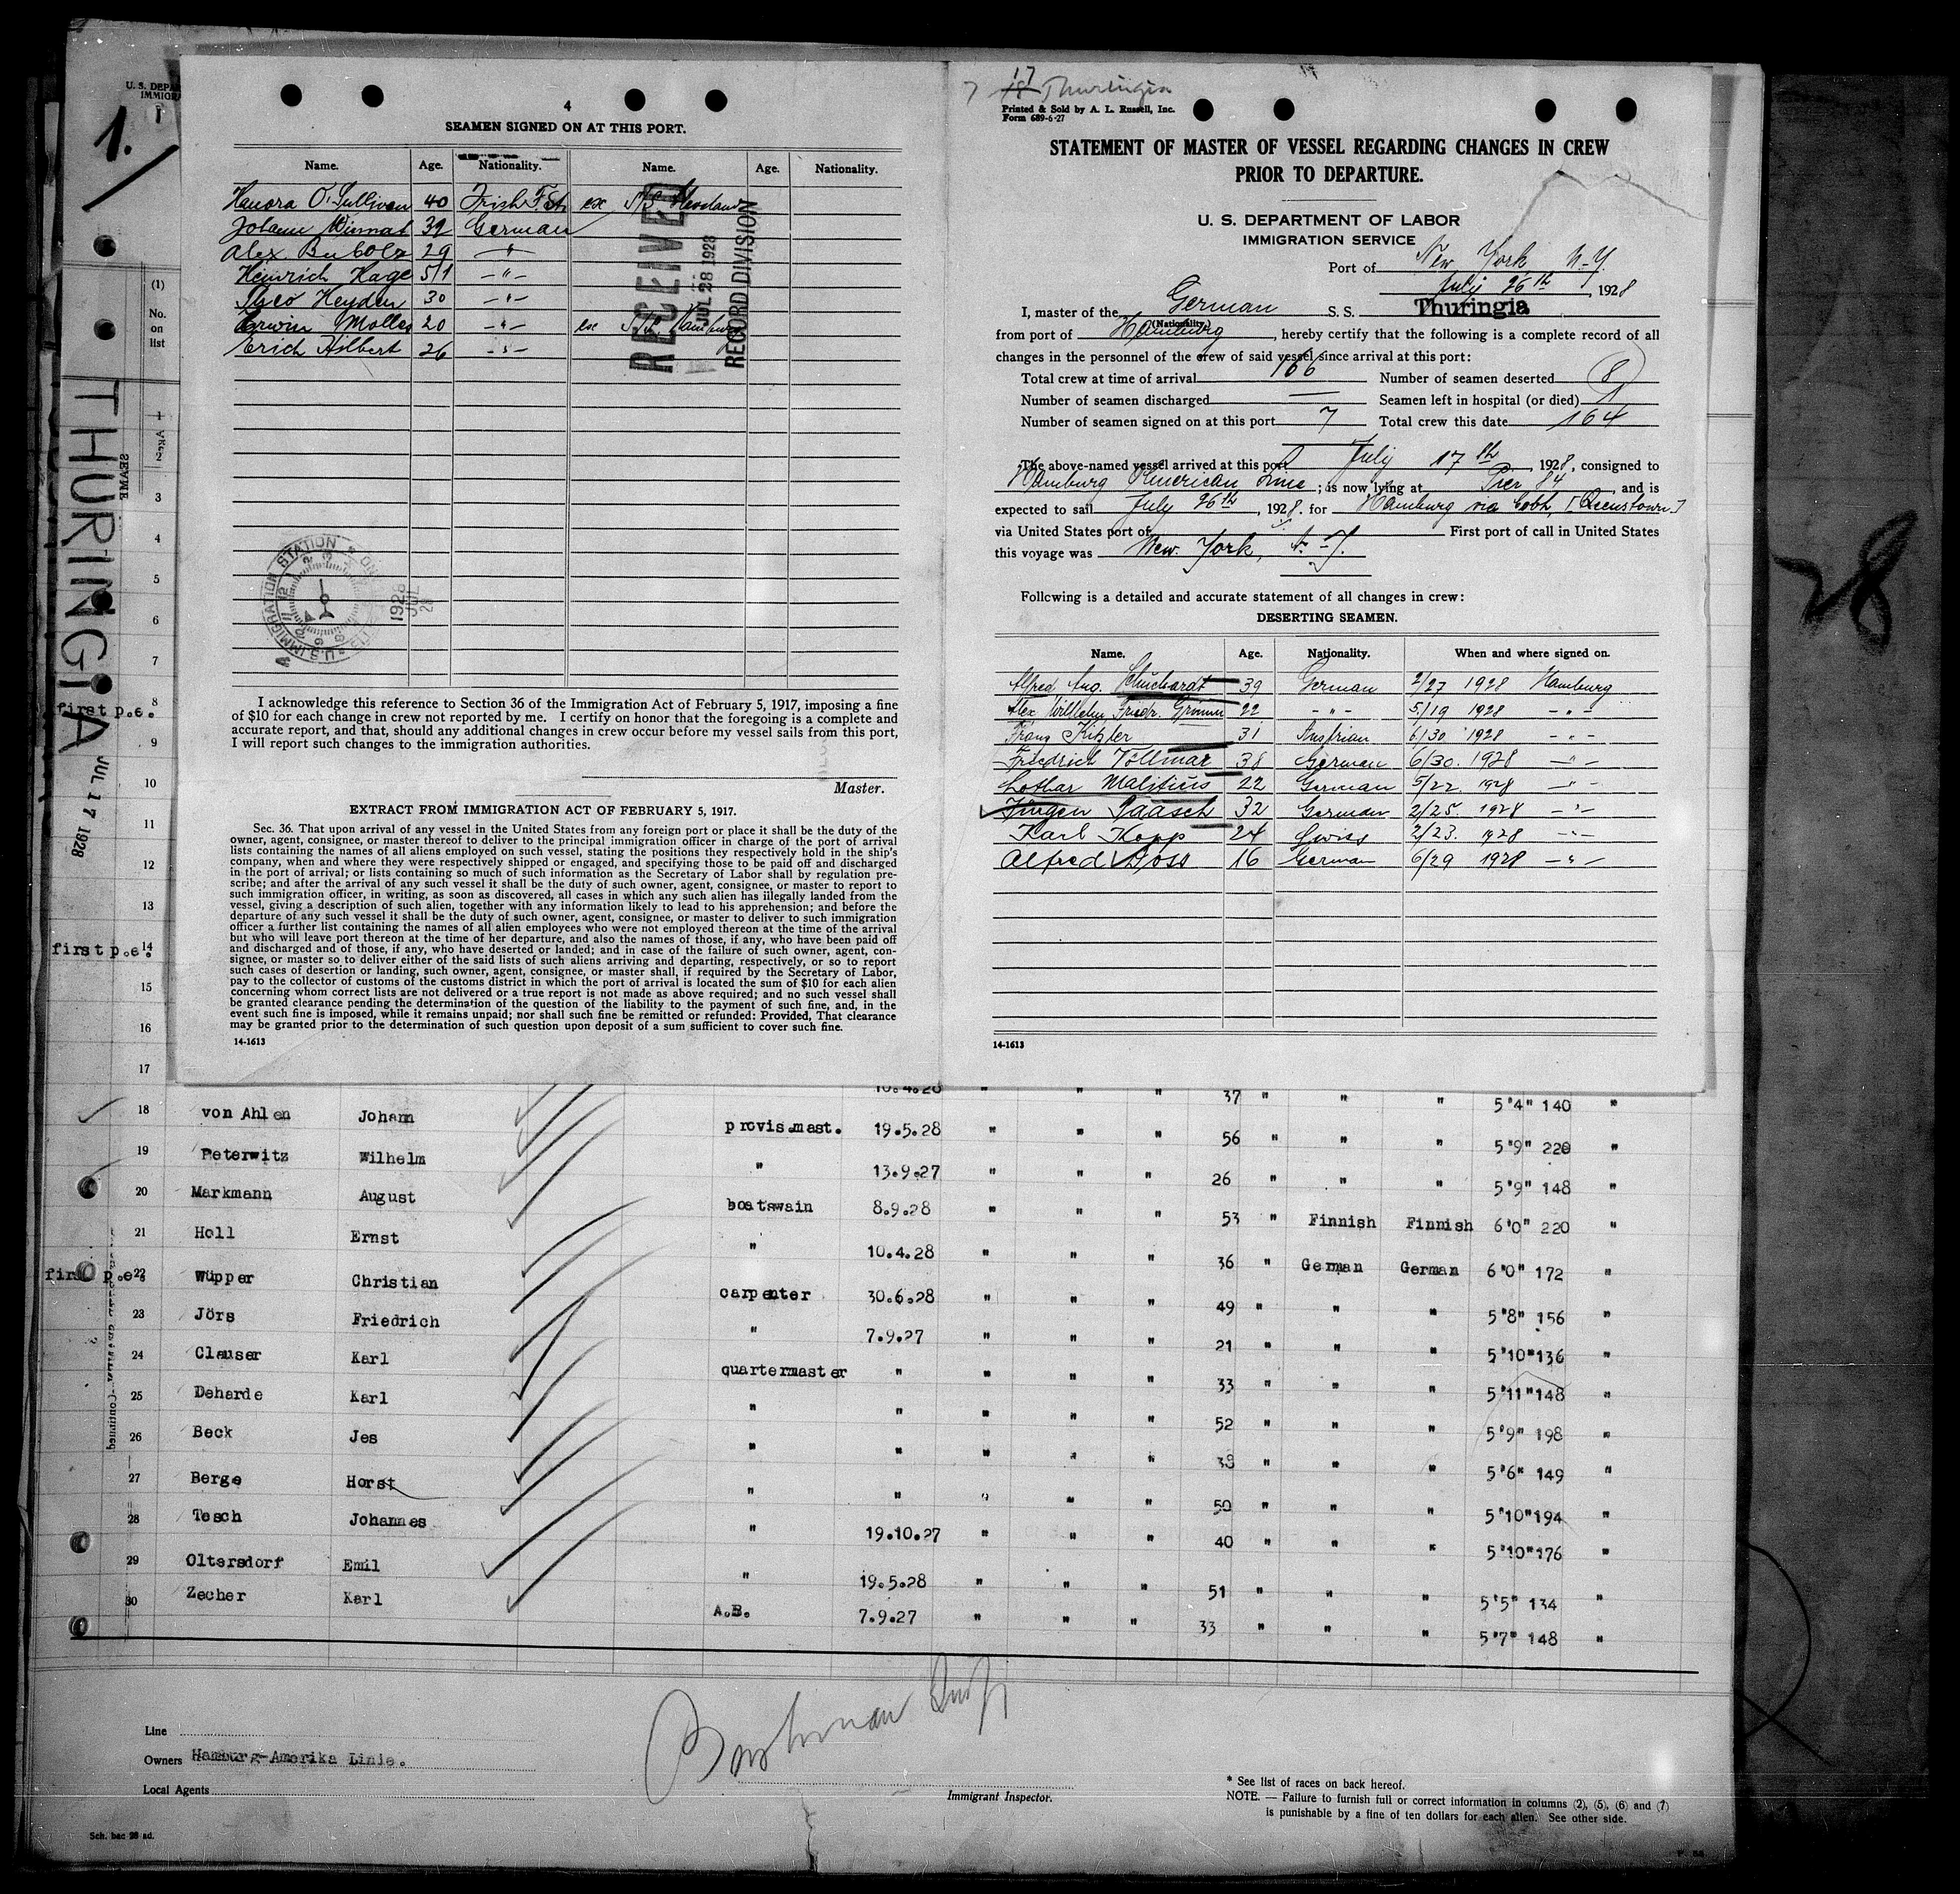 U. S. DEPA
IMMIGRA
1.
THURINGIA
JUL 17 1928
(1)
No.
on
list
4
SEAMEN SIGNED ON AT THIS PORT.
Name. Age. Nationality. Name. Age. Nationality.
Hanora O'Sullivan 40 Irish F. St. ex S/S Cleveland
Johann Wismat 39 German
Alex Bubolz 29 — " —
Heinrich Hage 51 — " —
Theo Heyden 30 — " —
Erwin Moller 20 — " — ex S/S. Hamburg
Erich Hilbert 26 — " —
RECEIVED
JUL 28 1928
RECORD DIVISION
U.S. IMMIGRATION STATION
1928
JUL
28
I acknowledge this reference to Section 36 of the Immigration Act of February 5, 1917, imposing a fine
of $10 for each change in crew not reported by me. I certify on honor that the foregoing is a complete and
accurate report, and that, should any additional changes in crew occur before my vessel sails from this port,
I will report such changes to the immigration authorities.
Master.
EXTRACT FROM IMMIGRATION ACT OF FEBRUARY 5, 1917.
Sec. 36. That upon arrival of any vessel in the United States from any foreign port or place it shall be the duty of the
owner, agent, consignee, or master thereof to deliver to the principal immigration officer in charge of the port of arrival
lists containing the names of all aliens employed on such vessel, stating the positions they respectively hold in the ship's
company, when and where they were respectively shipped or engaged, and specifying those to be paid off and discharged
in the port of arrival; or lists containing so much of such information as the Secretary of Labor shall by regulation pre-
scribe; and after the arrival of any such vessel it shall be the duty of such owner, agent, consignee, or master to report to
such immigration officer, in writing, as soon as discovered, all cases in which any such alien has illegally landed from the
vessel, giving a description of such alien, together with any information likely to lead to his apprehension; and before the
departure of any such vessel it shall be the duty of such owner, agent, consignee, or master to deliver to such immigration
officer a further list containing the names of all alien employees who were not employed thereon at the time of the arrival
but who will leave port thereon at the time of her departure, and also the names of those, if any, who have been paid off
and discharged and of those, if any, who have deserted or landed; and in case of the failure of such owner, agent, con-
signee, or master so to deliver either of the said lists of such aliens arriving and departing, respectively, or so to report
such cases of desertion or landing, such owner, agent, consignee, or master shall, if required by the Secretary of Labor,
pay to the collector of customs of the customs district in which the port of arrival is located the sum of $10 for each alien
concerning whom correct lists are not delivered or a true report is not made as above required; and no such vessel shall
be granted clearance pending the determination of the question of the liability to the payment of such fine, and, in the
event such fine is imposed, while it remains unpaid; nor shall such fine be remitted or refunded: Provided, That clearance
may be granted prior to the determination of such question upon deposit of a sum sufficient to cover such fine.
14-1613
7 17 18 Thuringia
Printed & Sold by A. L. Russell, Inc.
Form 689-6-27
STATEMENT OF MASTER OF VESSEL REGARDING CHANGES IN CREW
PRIOR TO DEPARTURE.
U. S. DEPARTMENT OF LABOR
IMMIGRATION SERVICE
Port of New York N-Y.
July 26th, 1928
I, master of the German S. S. Thuringia
(Nationality.)
from port of Hamburg, hereby certify that the following is a complete record of all
changes in the personnel of the crew of said vessel since arrival at this port:
Total crew at time of arrival 166 Number of seamen deserted 8
Number of seamen discharged — Seamen left in hospital (or died) 1
Number of seamen signed on at this port 7 Total crew this date 164
The above-named vessel arrived at this port July 17th 1928, consigned to
Hamburg American Line; is now lying at Pier 84, and is
expected to sail July 26th, 1928. for Hamburg via Cobh, [Queenstown]
via United States port of First port of call in United States
this voyage was New York, N.-Y.
Following is a detailed and accurate statement of all changes in crew:
DESERTING SEAMEN.
Name. Age. Nationality. When and where signed on.
Alfred Aug. Schuchardt 39 German 2/27 1928 Hamburg
Alex Wilhelm Friedr. Grimm 22 - " - 5/19 1928 - " -
Franz Kitzler 31 Austrian 6/30 1928 - " -
Friedrich Vollmar 38 German 6/30. 1928 - " -
Lothar Malitius 22 German 5/22. 1928 - " -
Jürgen Paasch 32 German 2/25. 1928 - " -
Karl Kopp 24 Swiss 2/23. 1928 - " -
Alfred Doss 16 German 6/29 1928 - " -
14-1613
28
2
3
4
5
6
7
first p.e. 8
9
10
11
12
13
first p.e. 14
15
16
17 10.4.28 " " " 37 " " " 5'4" 140 "
18 von Ahlen Johann provis.mast. 19.5.28 " " " 56 " " " 5'9" 220 "
19 Peterwitz Wilhelm " 13.9.27 " " " 26 " " " 5'9" 148 "
20 Markmann August boatswain 8.9.28 " " " 53 " Finnish Finnish 6'0" 220 "
21 Holl Ernst " 10.4.28 " " " 36 " German German 6'0" 172 "
first p.e. 22 Wüpper Christian carpenter 30.6.28 " " " 49 " " " 5'8" 156 "
23 Jörs Friedrich " 7.9.27 " " " 21 " " " 5'10" 136 "
24 Clauser Karl quartermaster " " " " 33 " " " 5'11" 148 "
25 Deharde Karl " " " " " 52 " " " 5'9" 198 "
26 Beck Jes " " " " " 38 " " " 5'6" 149 "
27 Berge Horst " " " " " 50 " " " 5'10" 194 "
28 Tesch Johannes " 19.10.27 " " " 40 " " " 5'10" 176 "
29 Oltersdorf Emil " 19.5.28 " " " 51 " " " 5'5" 134 "
30 Zecher Karl A.B. 7.9.27 " " " 33 " " " 5'7" 148 "
Line
Owners Hamburg-Amerika Linie.
Local Agents
Immigrant Inspector.
* See list of races on back hereof.
NOTE. — Failure to furnish full or correct information in columns (2), (5), (6) and (7)
is punishable by a fine of ten dollars for each alien. See other side.
Sch. bac 28 ad.